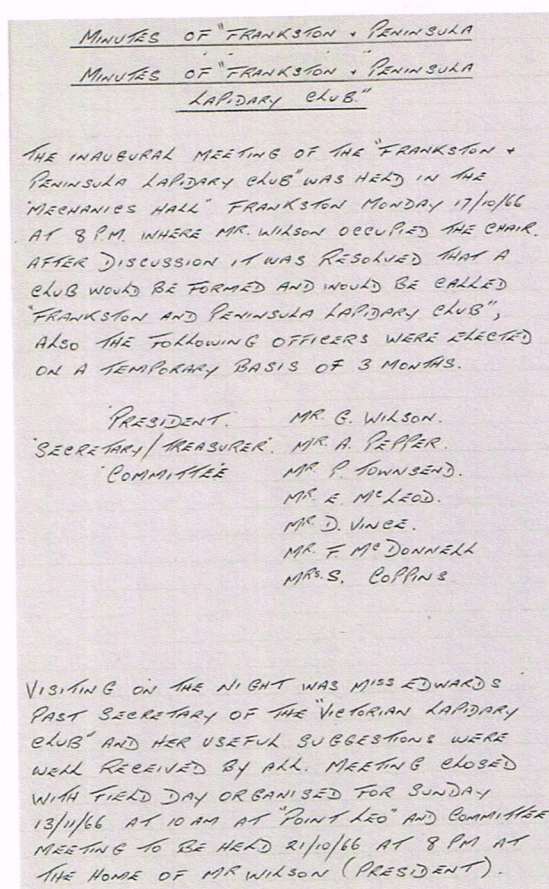 MINUTES OF "FRANKSTON + PENINSULA
MINUTES OF "FRANKSTON + PENINSULA
LAPIDARY CLUB."
THE INAUGURAL MEETING OF THE "FRANKSTON +
PENINSULA LAPIDARY CLUB" WAS HELD IN THE
"MECHANICS HALL" FRANKSTON MONDAY 17/10/66
AT 8 P.M. WHERE MR. WILSON OCCUPIED THE CHAIR.
AFTER DISCUSSION IT WAS RESOLVED THAT A
CLUB WOULD BE FORMED AND WOULD BE CALLED
"FRANKSTON AND PENINSULA LAPIDARY CLUB",
ALSO THE FOLLOWING OFFICERS WERE ELECTED
ON A TEMPORARY BASIS OF 3 MONTHS.
'PRESIDENT. MR. G. WILSON.
'SECRETARY/TREASURER'. MR. A. PEPPER.
'COMMITTEE' MR. P. TOWNSEND.
MR. E. McLEOD.
MR. D. VINCE.
MR. F. McDONNELL
MRS. S. COPPINS
VISITING ON THE NIGHT WAS MISS EDWARDS
PAST SECRETARY OF THE "VICTORIAN LAPIDARY
CLUB" AND HER USEFUL SUGGESTIONS WERE
WELL RECEIVED BY ALL. MEETING CLOSED
WITH FIELD DAY ORGANISED FOR SUNDAY
13/11/66 AT 10 AM AT "POINT LEO" AND COMMITTEE
MEETING TO BE HELD 21/10/66 AT 8 PM AT
THE HOME OF MR WILSON (PRESIDENT).